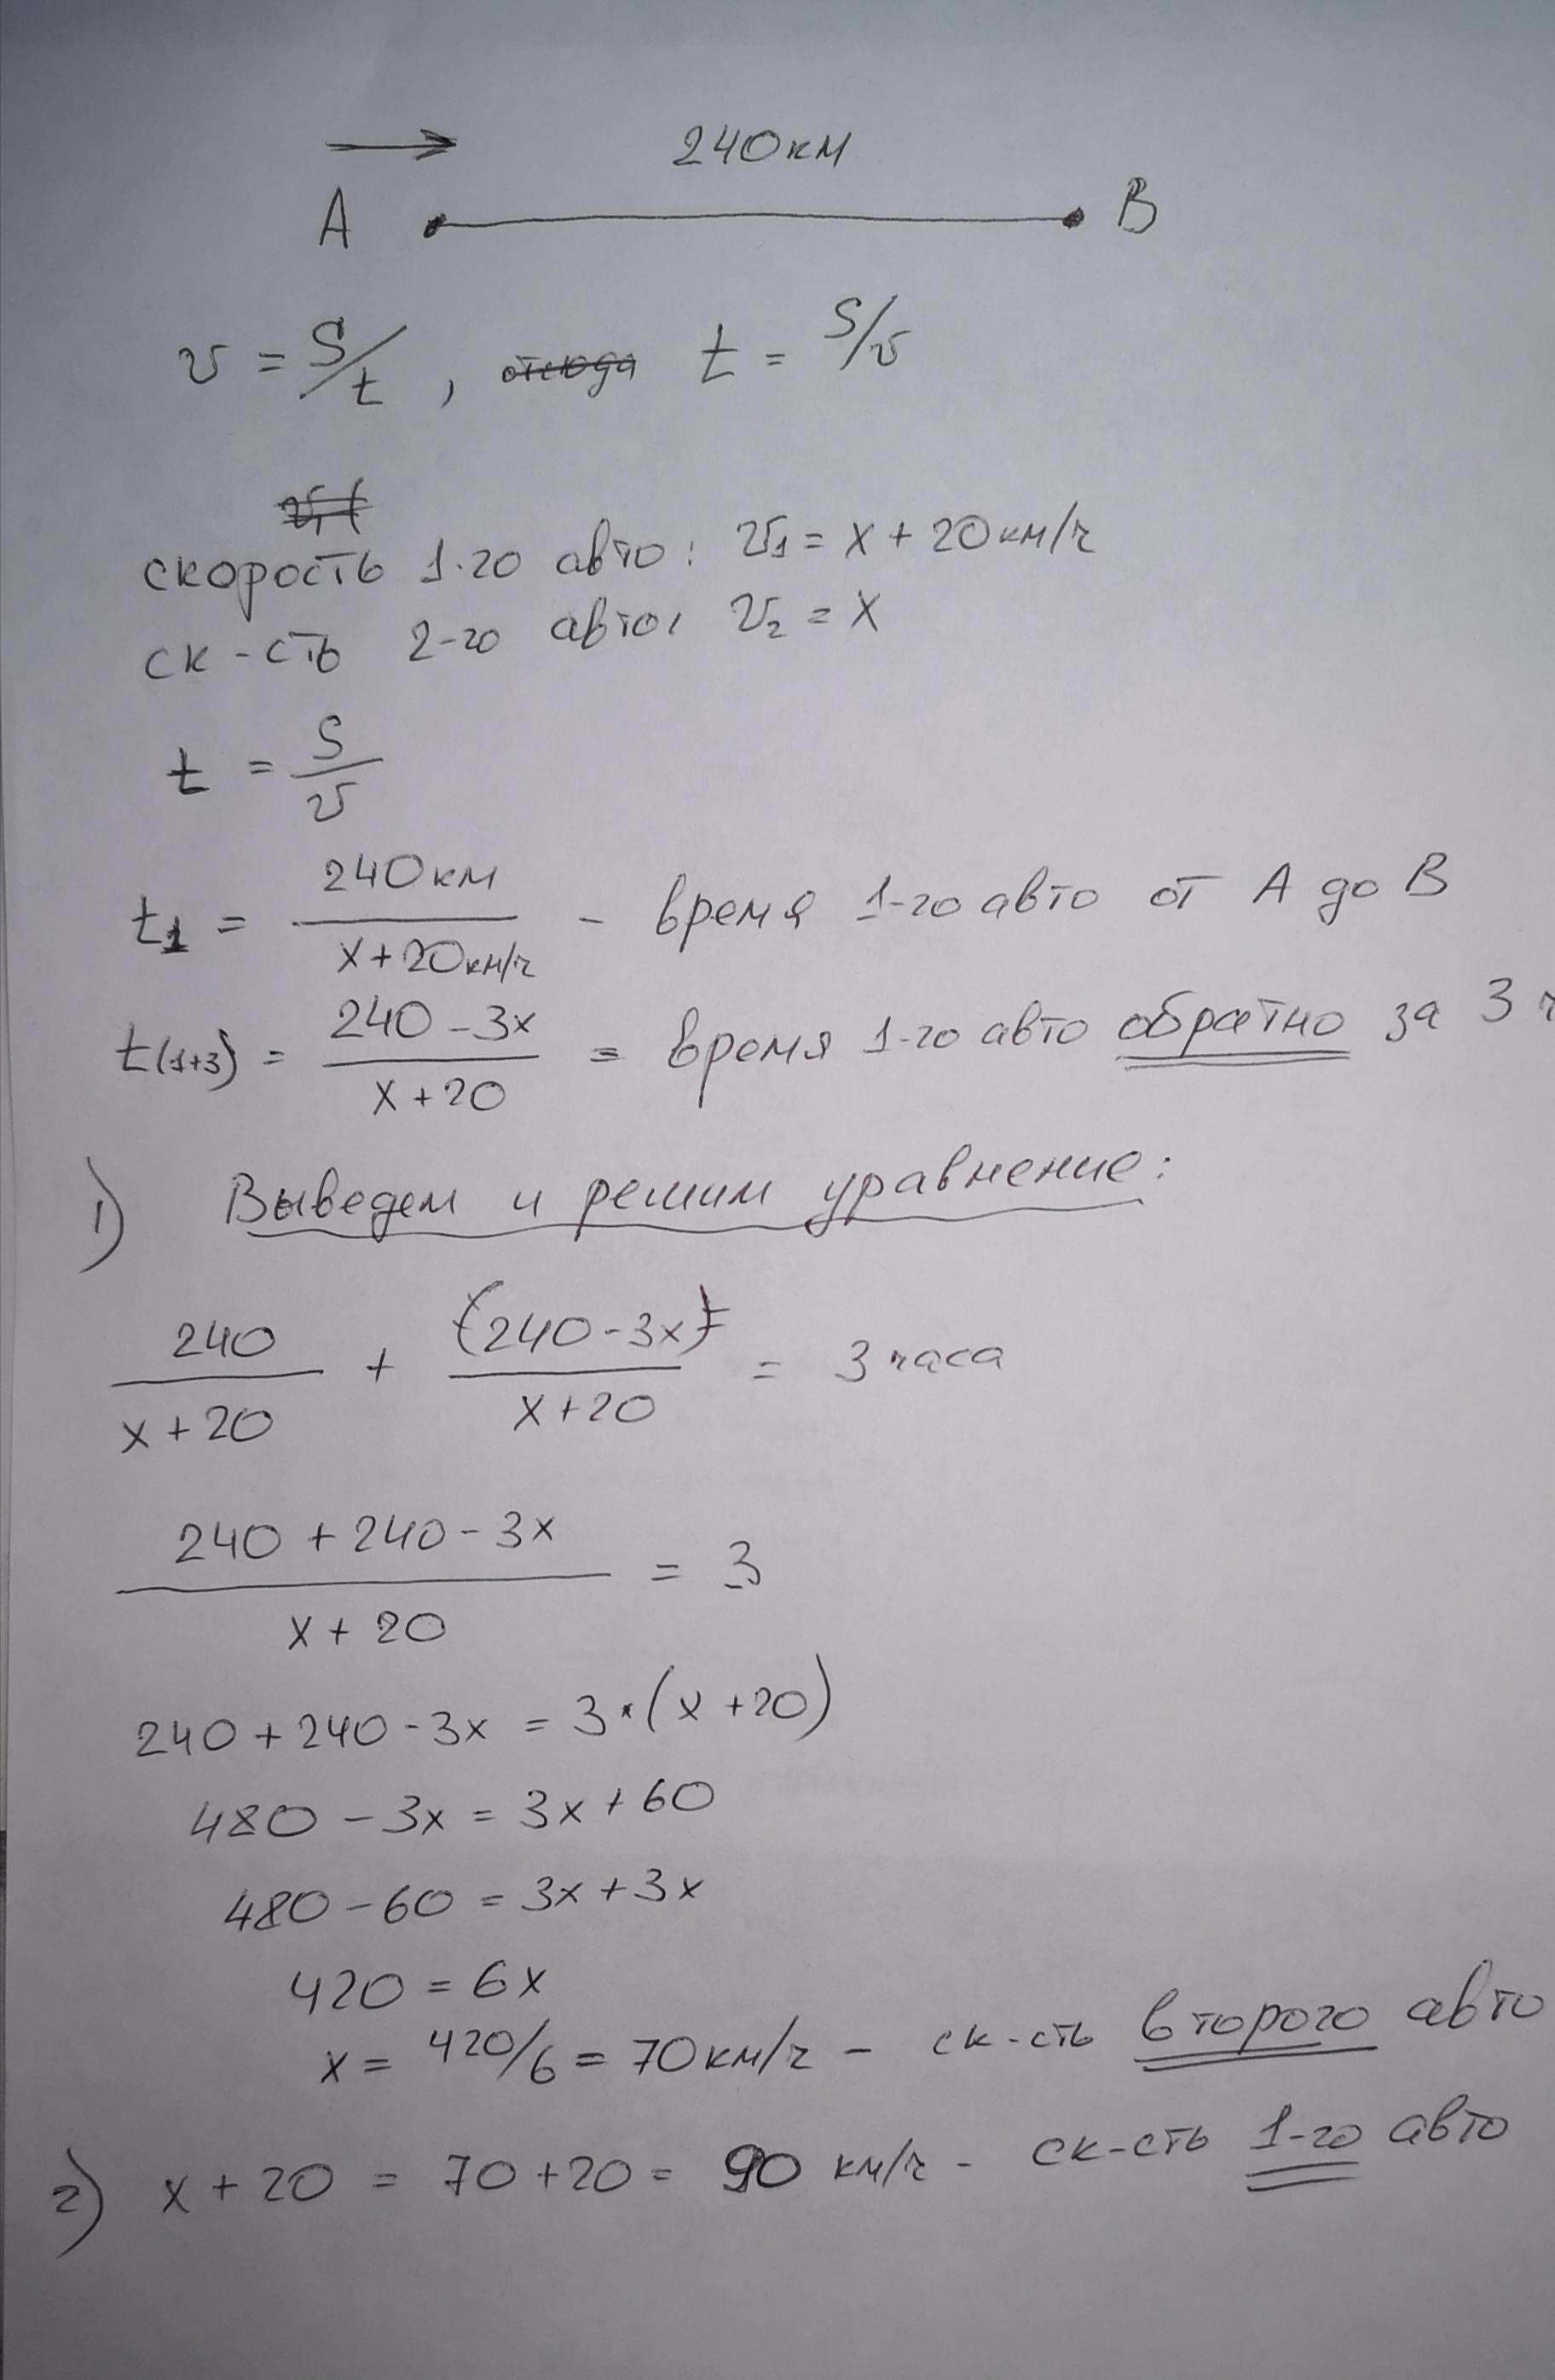 240км
A B
v = S/t, отсюда t = S/v
скорость 1-го авто: v₁ = x + 20км/ч
ск-сть 2-го авто: v₂ = x
t = S/v
t₁ = 240км/x+20км/ч - время 1-го авто от A до B
t(1+3) = 240-3x/x+20 = время 1-го авто обратно за 3 ч
1) Выведем и решим уравнение:
240/x+20 + (240-3x)/x+20 = 3 часа
240+240-3x/x+20 = 3
240+240-3x = 3·(x+20)
480-3x = 3x+60
480-60 = 3x+3x
420 = 6x
x = 420/6 = 70км/ч - ск-сть второго авто
2) x+20 = 70+20 = 90 км/ч - ск-сть 1-го авто